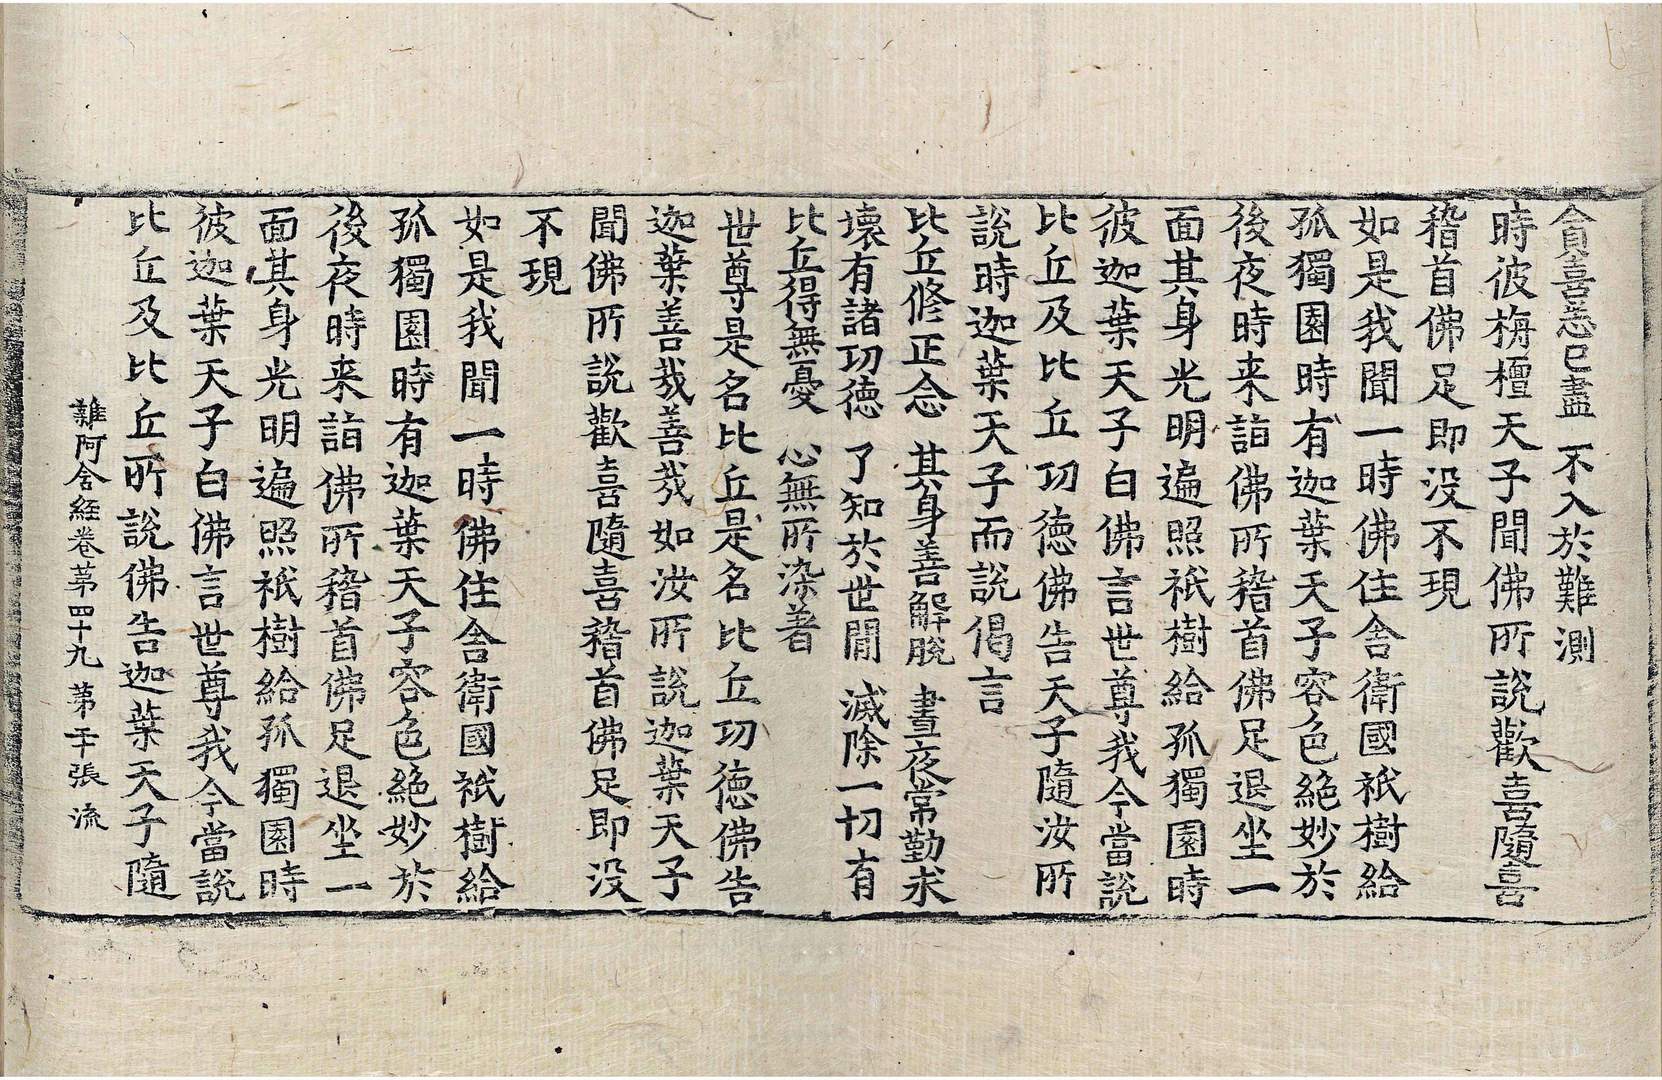 貪喜悉已盡　不入於難測
時彼栴檀天子聞佛所說歡喜隨喜
稽首佛足即没不現
如是我聞一時佛住舍衛國祇樹給
孤獨園時有迦葉天子容色絶妙於
後夜時来詣佛所稽首佛足退坐一
面其身光明遍照祇樹給孤獨園時
彼迦葉天子白佛言世尊我今當說
比丘及比丘功德佛告天子隨汝所
說時迦葉天子而說偈言
比丘修正念　其身善解脫　晝夜常勤求
壞有諸功德　了知於世閒　滅除一切有
比丘得無憂　心無所染著
世尊是名比丘是名比丘功德佛告
迦葉善哉善哉如汝所說迦葉天子
聞佛所說歡喜隨喜稽首佛足即没
不現
如是我聞一時佛住舍衛國祇樹給
孤獨園時有迦葉天子容色絶妙於
後夜時来詣佛所稽首佛足退坐一
面其身光明遍照祇樹給孤獨園時
彼迦葉天子白佛言世尊我今當說
比丘及比丘所說佛告迦葉天子隨
雜阿含經卷苐四十九　第二十張　流